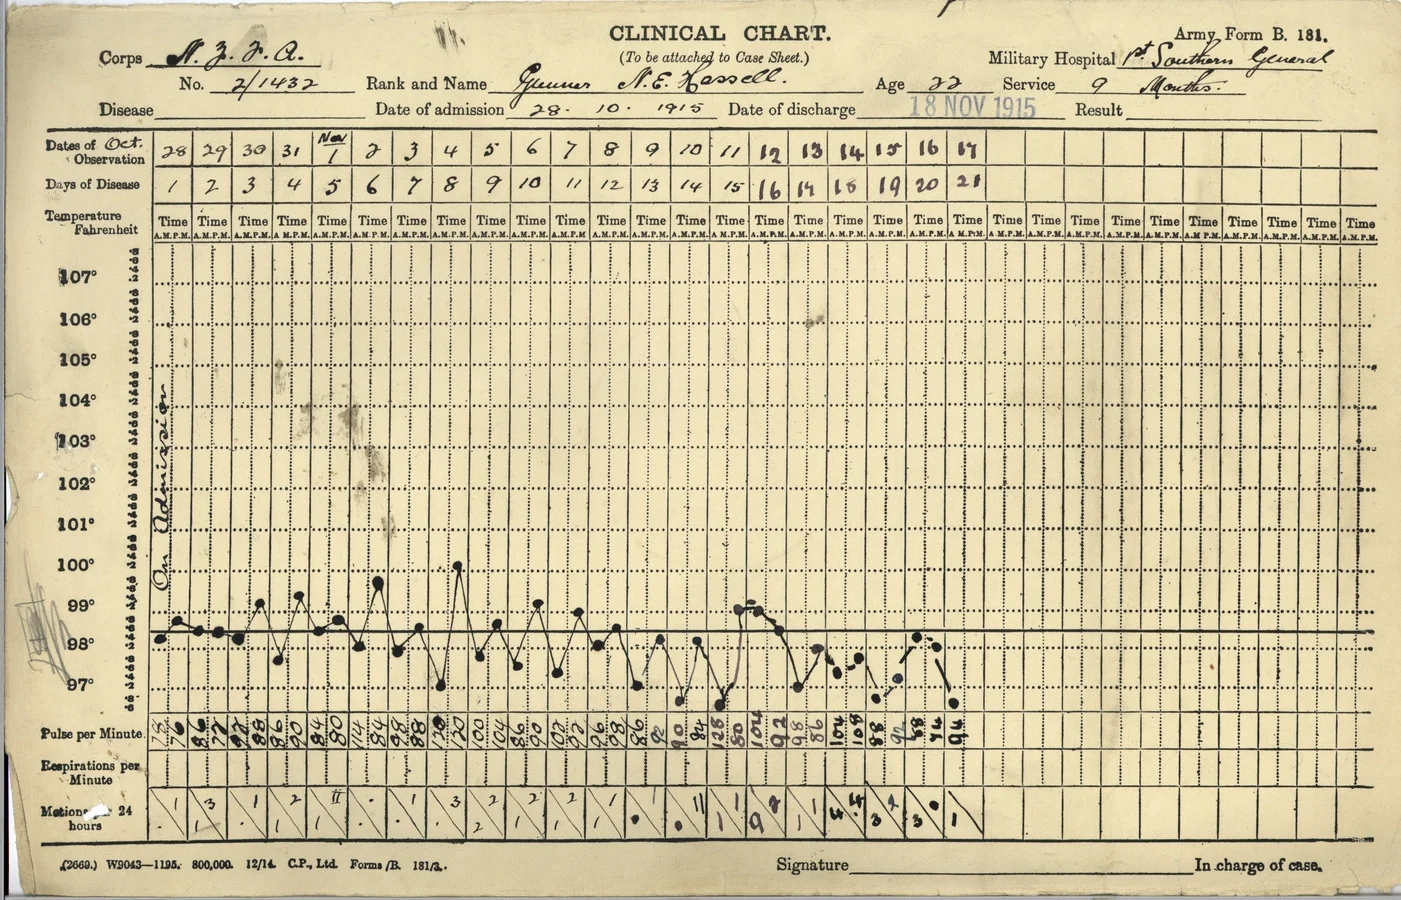 CLINICAL CHART.
Army Form B. 181.
Corps N. Z. F. A.
(To be attached to Case Sheet.)
Military Hospital 1st Southern General
No. 2/1432 Rank and Name Gunner N. E. Hassell. Age 22 Service 9 Months.
Disease Date of admission 28. 10. 1915 Date of discharge 18 NOV 1915 Result
Dates of Oct. Observation 28 29 30 31 Nov 1 2 3 4 5 6 7 8 9 10 11 12 13 14 15 16 17
Days of Disease 1 2 3 4 5 6 7 8 9 10 11 12 13 14 15 16 17 18 19 20 21
Temperature Fahrenheit Time Time Time Time Time Time Time Time Time Time Time Time Time Time Time Time Time Time Time Time Time Time Time Time Time Time Time Time Time Time Time
A.M. P.M. A.M. P.M. A.M. P.M. A.M. P.M. A.M. P.M. A.M. P.M. A.M. P.M. A.M. P.M. A.M. P.M. A.M. P.M. A.M. P.M. A.M. P.M. A.M. P.M. A.M. P.M. A.M. P.M. A.M. P.M. A.M. P.M. A.M. P.M. A.M. P.M. A.M. P.M. A.M. P.M. A.M. P.M. A.M. P.M. A.M. P.M. A.M. P.M. A.M. P.M. A.M. P.M. A.M. P.M. A.M. P.M. A.M. P.M. A.M. P.M.
107°
106°
105°
104°
103°
102°
101°
100°
99°
98°
97°
On Admission
Pulse per Minute 78 76 86 72 92 88 86 90 84 80 114 84 98 88 120 120 100 104 86 90 102 92 96 98 86 92 90 84 128 80 104 92 98 86 104 108 88 92 88 94 94
Respirations per Minute
Motions 24 hours
(2669.) W9043—1195. 800,000. 12/14. C.P., Ltd. Forms/B. 181/3.
Signature In charge of case.